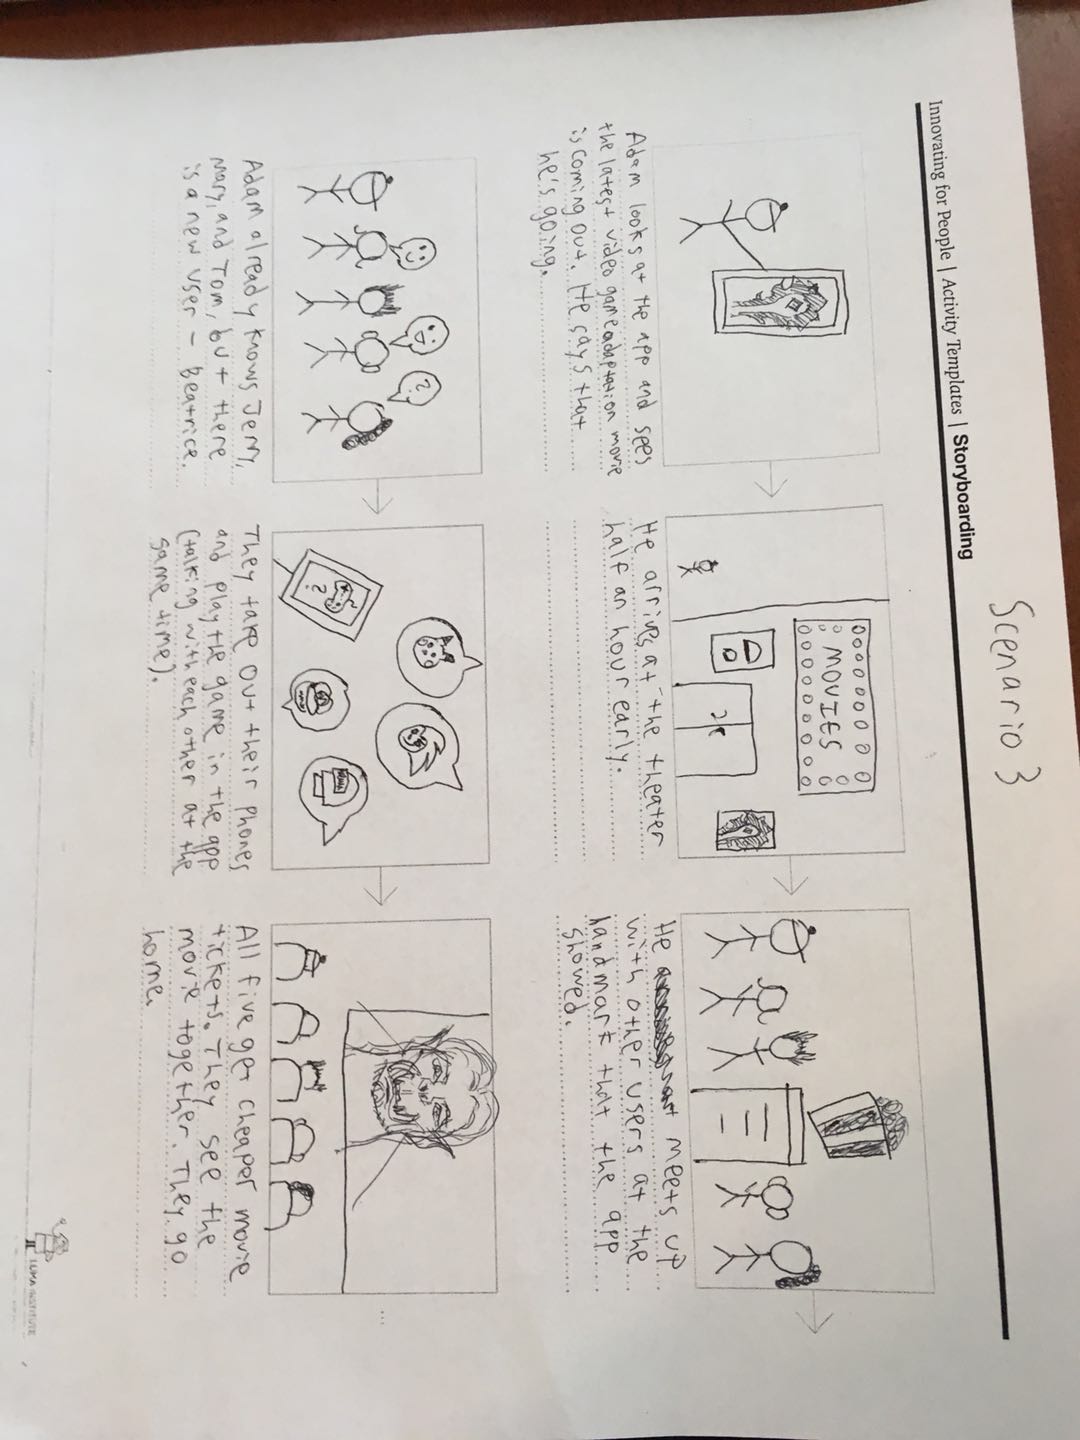 Scenario 3
Innovating for People | Activity Templates | Storyboarding
MOVIES
Adam looks at the app and sees
the latest video game adaptation movie
is coming out. He says that
he's going.
He arrives at the theater
half an hour early.
He meets up
with other users at the
landmark that the app
showed.
?
?
Adam already knows Jerry,
Mary, and Tom, but there
is a new user - Beatrice.
They take out their phones
and play the game in the app
(talking with each other at the
same time).
All five get cheaper movie
tickets. They see the
movie together. They go
home.
...
LUMA INSTITUTE